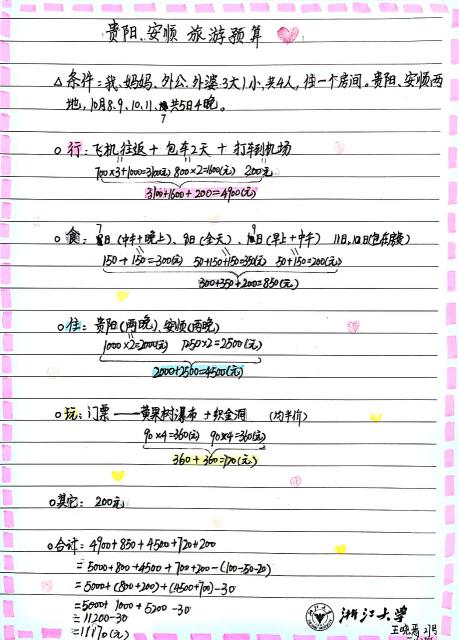 贵阳、安顺 旅游预算
△ 条件：我、妈妈、外公、外婆3大1小，共4人，住一个房间。贵阳、安顺两
地，10月8、9、10、11、共5日4晚。
7
○ 行：飞机往返 + 包车2天 + 打车到机场
700×3+1000=3100(元) 800×2=1600(元) 200元
3100+1600+200=4900(元)
○ 食：7日(中午+晚上)、8日(全天)、9日(早上+中午) 11日,10日(包在房费)
150+150=300(元) 50+150+150=350(元) 50+150=200(元)
300+350+200=850(元)
○ 住：贵阳(两晚)、安顺(两晚)
1000×2=2000(元) 1250×2=2500(元)
2000+2500=4500(元)
○ 玩：门票——黄果树瀑布 + 织金洞 (均半价)
90×4=360(元) 90×4=360(元)
360+360=720(元)
○ 其它：200元
○ 合计：4900+850+4500+720+200
=5000+800+4500+700+200-(100-50-20)
=5000+(800+200)+(4500+700)-30
=5000+1000+5200-30
=11200-30
=11170(元)
浙江大学
王晓 21号